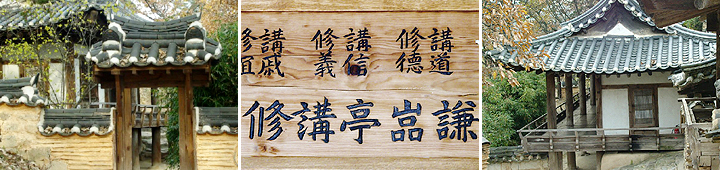 講道
修德
講信
修義
講戚
修
謙嵒亭講修